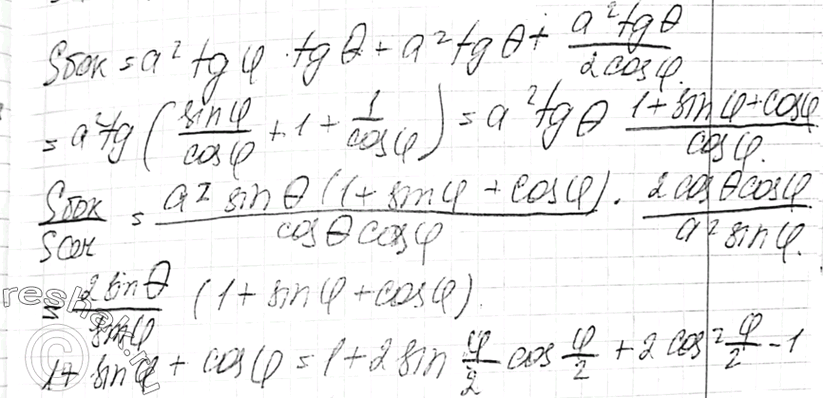 Sбок = a² tg φ · tg θ + a² tg θ + a² tg θ / 2 cos φ.
= a² tg ( sin φ / cos φ + 1 + 1 / cos φ ) = a² tg θ (1 + sin φ + cos φ) / cos φ.
Sбок / Sсеч = a² sin θ (1 + sin φ + cos φ) / cos θ cos φ · 2 cos θ cos φ / a² sin φ.
= 2 sin θ / sin φ (1 + sin φ + cos φ).
1 + sin φ + cos φ = 1 + 2 sin φ/2 cos φ/2 + 2 cos² φ/2 - 1
reshak.ru